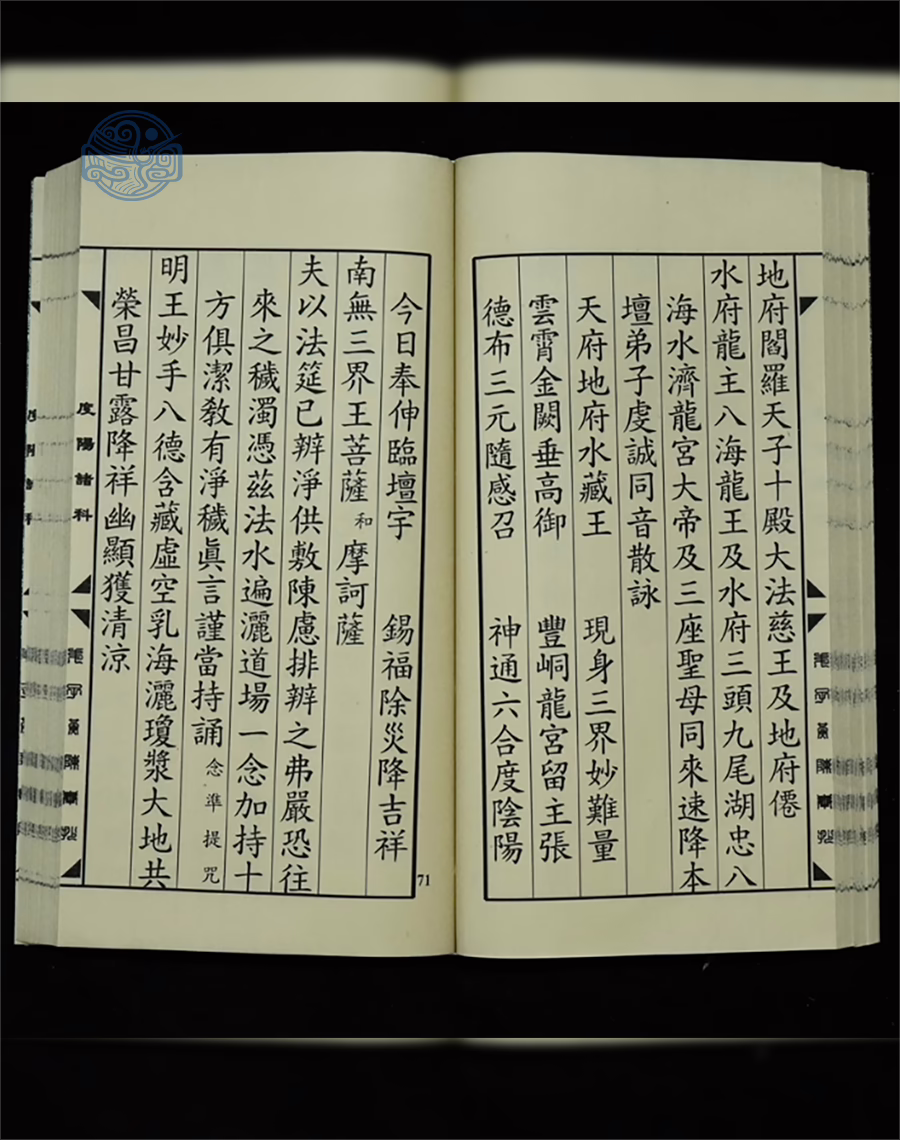 地府閻羅天子十殿大法慈王及地府僊
水府龍主八海龍王及水府三頭九尾湖忠八
海水濟龍宮大帝及三座聖母同來速降本
壇弟子虔誠同音散詠
天府地府水藏王 現身三界妙難量
雲霄金闕垂高御 豐峒龍宮留主張
德布三元隨感召 神通六合度陰陽
今日奉伸臨壇宇 錫福除災降吉祥
南無三界王菩薩 和 摩訶薩
夫以法筵已辨淨供敷陳慮排辨之弗嚴恐往
來之穢濁憑茲法水遍灑道場一念加持十
方俱潔教有淨穢眞言謹當持誦 念準提咒
明王妙手八德含藏虛空乳海灑瓊漿大地共
榮昌甘露降祥幽顯獲清涼
度陽諸科
71